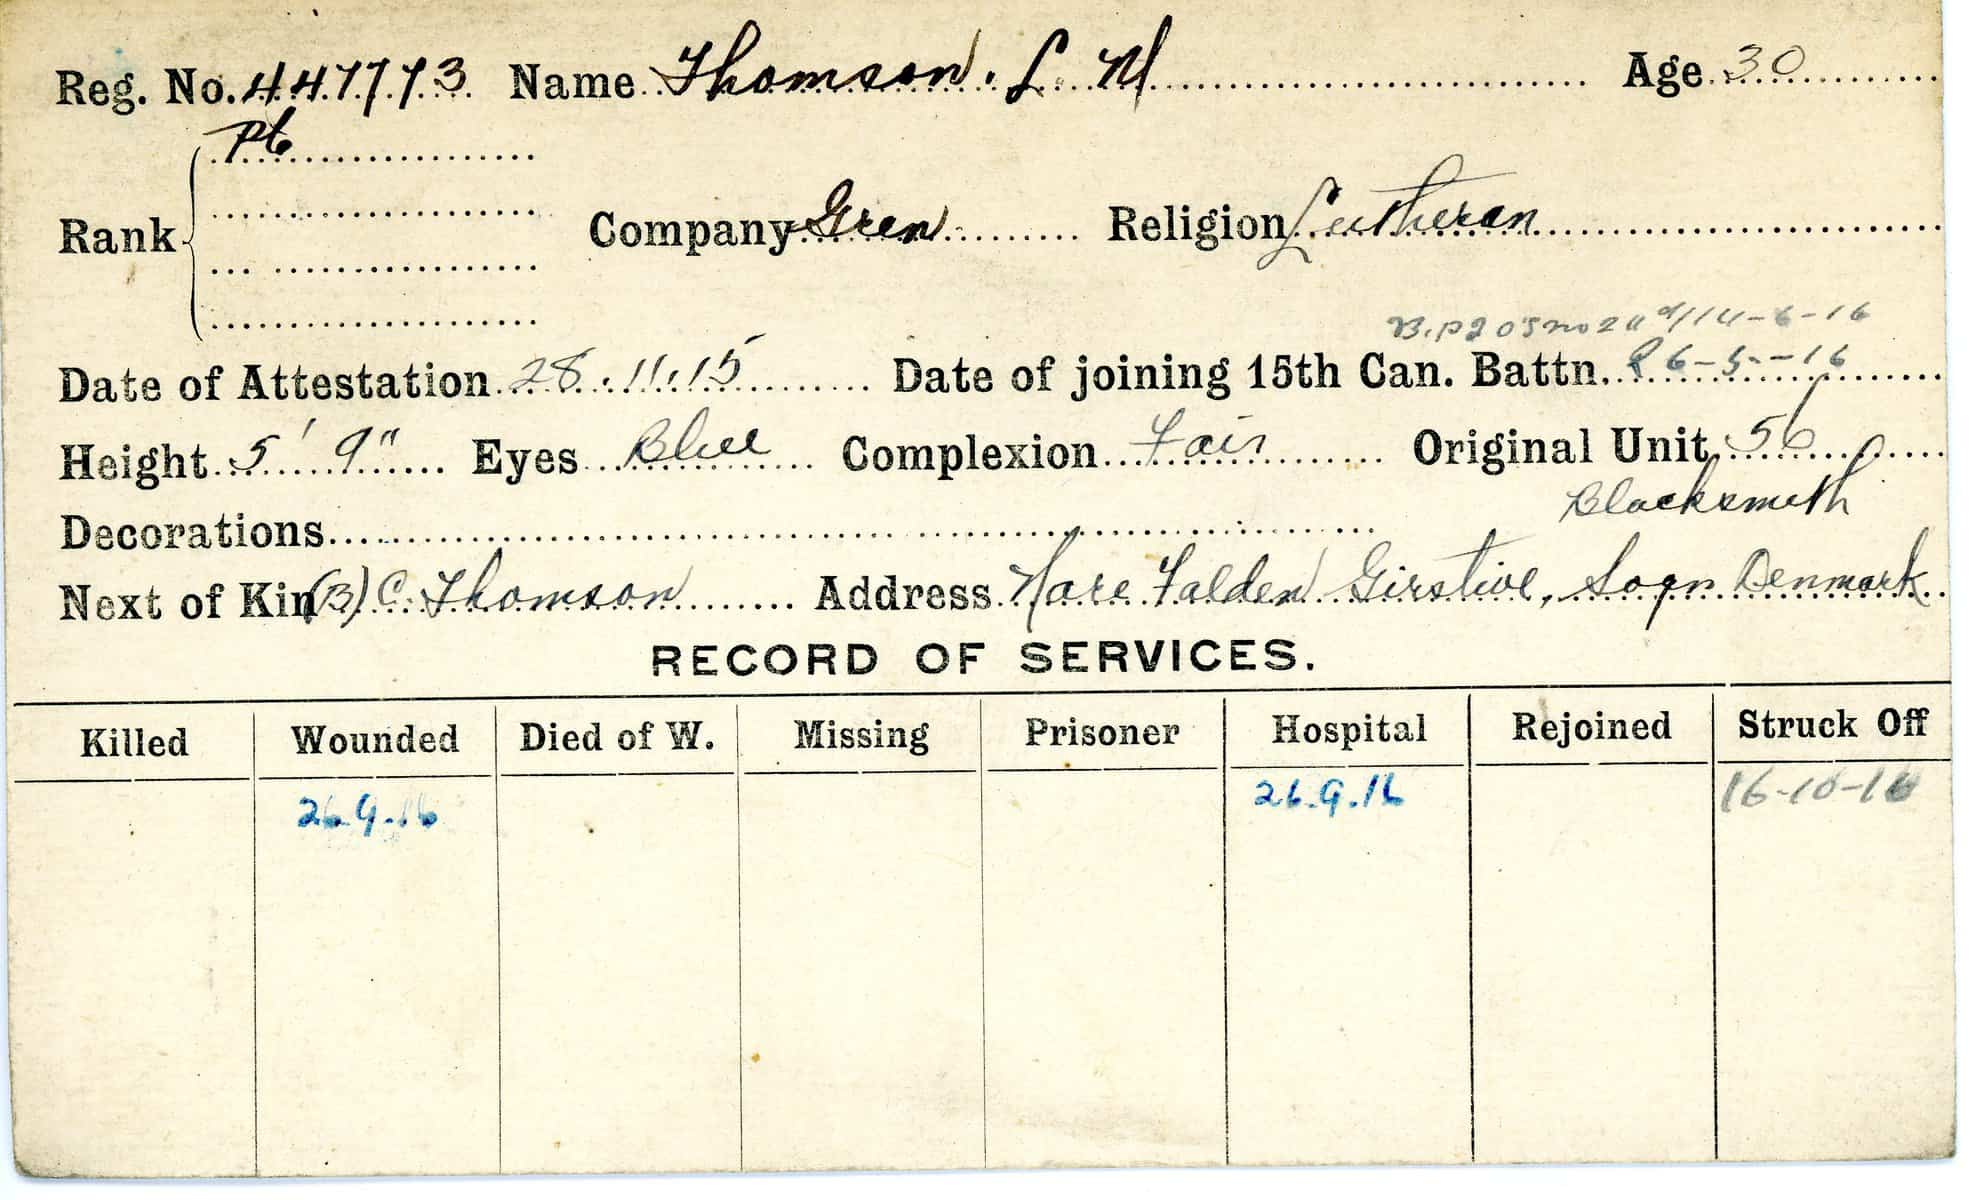 Reg. No. 447773 Name Thomson. L. M Age 30
Pte
Rank Company Gren Religion Lutheran
14-6-16
Date of Attestation 28.11.15 Date of joining 15th Can. Battn. 6-5-16
Height 5' 9" Eyes Blue Complexion Fair Original Unit 56
Blacksmith
Decorations
Next of Kin (B) C. Thomson Address Nore Falden Girstive, Sogn Denmark
RECORD OF SERVICES.
Killed Wounded Died of W. Missing Prisoner Hospital Rejoined Struck Off
26.9.16 26.9.16 16-10-16